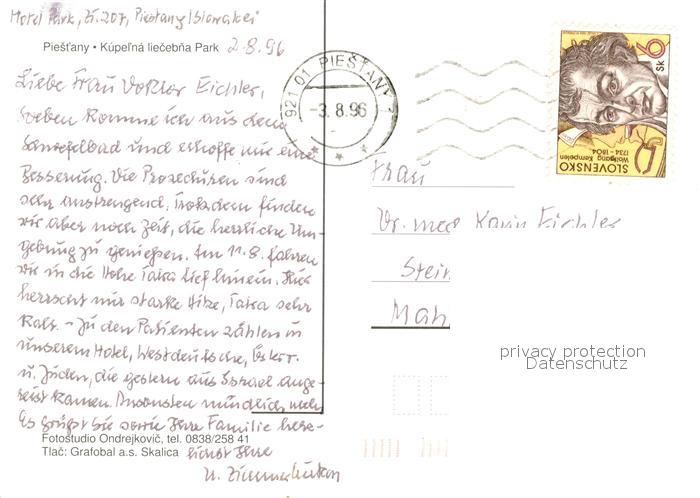 Hotel Park, Zi. 207, Piešťany/Slowakei
Piešťany • Kúpeľná liečebňa Park 2.8.96
Liebe Frau Doktor Eichler,
soeben komme ich aus dem
Schwefelbad und erhoffe mir eine
Besserung. Die Prozeduren sind
sehr anstrengend, trotzdem finden
wir aber noch Zeit, die herrliche Um-
gebung zu genießen. Am 11.8. fahren
wir in die Hohe Tatra hinein. Hier
herrscht nur starke Hitze, Tatra sehr
kalt. - Zu den Patienten zählen in
unserem Hotel, Westdeutsche, Österr.
u. Juden, die gestern aus Israel ange-
reist kamen. Ansonsten mündlich mehr
Es grüßt Sie sowie Ihre Familie herz-
Fotostudio Ondrejkovič, tel. 0838/258 41
Tlač: Grafobal a.s. Skalica lichst Ihre
921 01 PIEŠŤANY
-3.8.96
Sk 6
SLOVENSKO
Wolfgang Kempelen
1734 - 1804
Frau
Dr. med Karin Eichler
Stein
Mah
privacy protection
Datenschutz